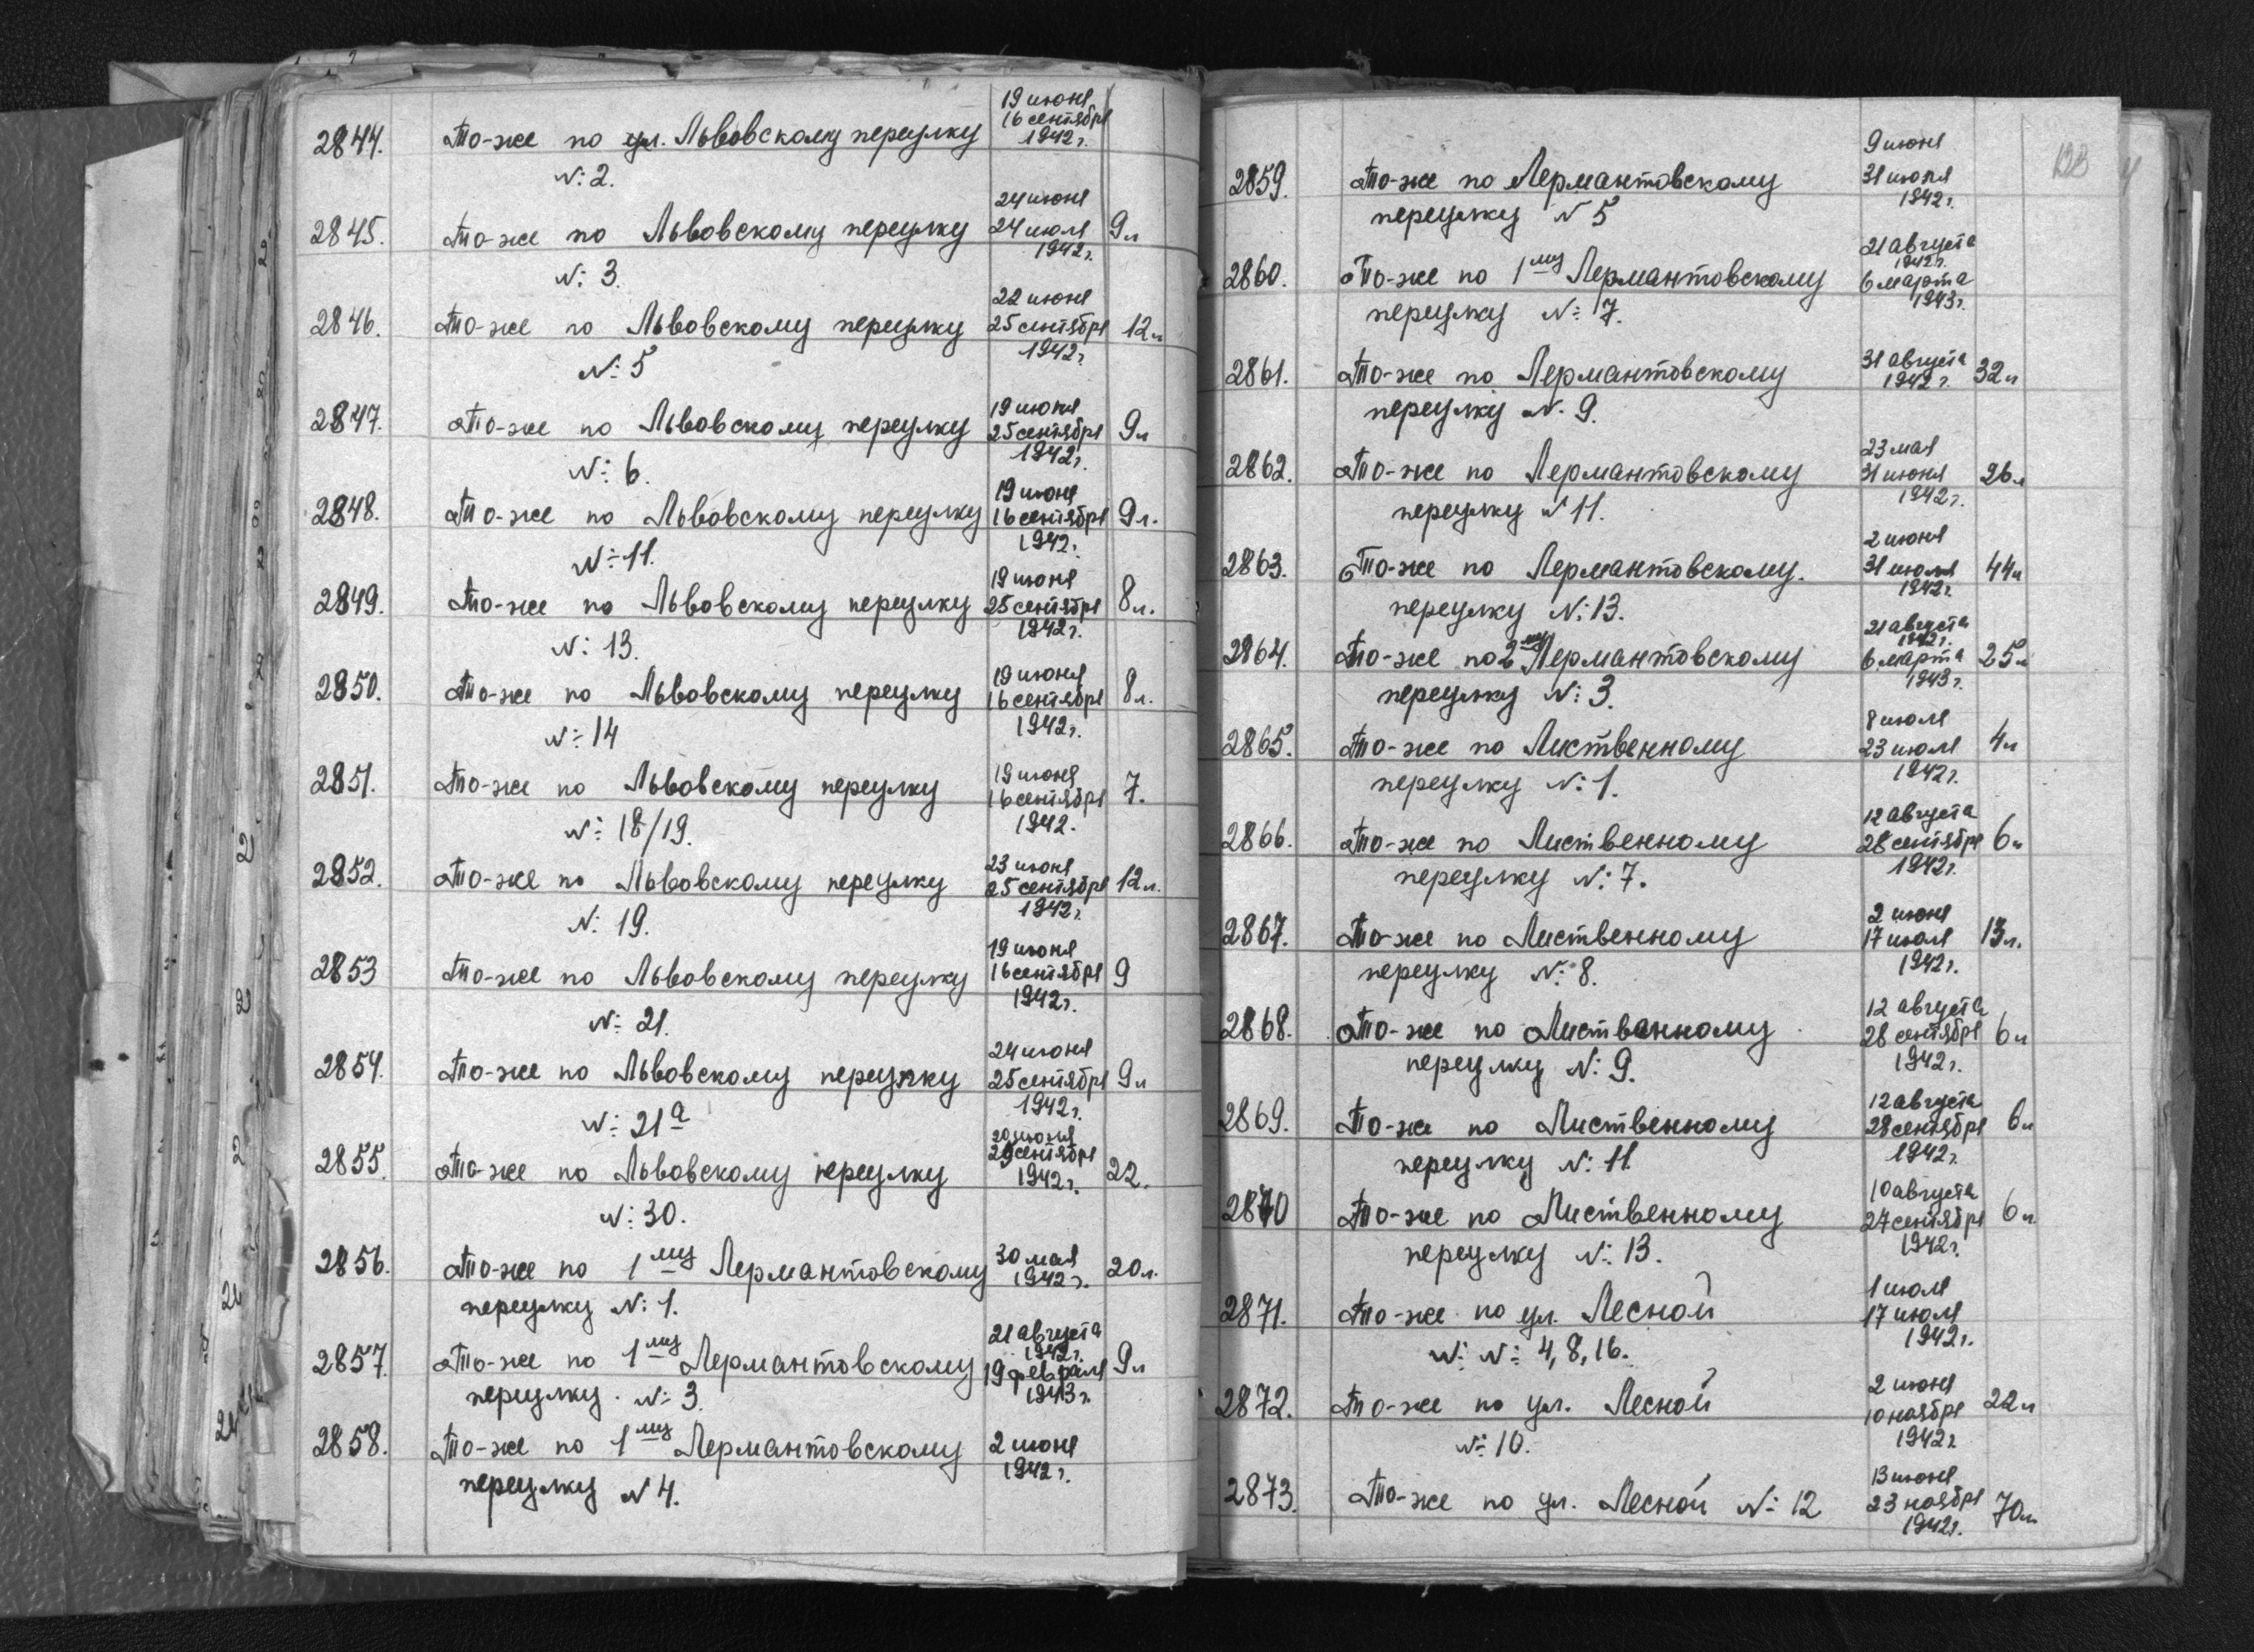 19 июня
16 сентября
2844. То-же по ул. Львовскому переулку 1942 г.
№ 2.
24 июня
2845. То-же по Львовскому переулку 24 июля 9 л
1942 г.
№ 3.
22 июня
2846. То-же по Львовскому переулку 25 сентября 12 л
1942 г.
№ 5
19 июня
2847. То-же по Львовскому переулку 25 сентября 9 л
1942 г.
№ 6.
19 июня
2848. То-же по Львовскому переулку 16 сентября 9 л.
1942 г.
№ 11.
19 июня
2849. То-же по Львовскому переулку 25 сентября 8 л.
1942 г.
№ 13.
19 июня
2850. То-же по Львовскому переулку 16 сентября 8 л.
1942 г.
№ 14
19 июня
2851. То-же по Львовскому переулку 16 сентября 7.
1942.
№ 18/19.
23 июня
2852. То-же по Львовскому переулку 25 сентября 12 л.
1942 г.
№ 19.
19 июня
2853 То-же по Львовскому переулку 16 сентября 9
1942 г.
№ 21.
24 июня
2854. То-же по Львовскому переулку 25 сентября 9 л
1942 г.
№ 21а
сентября
2855. То-же по Львовскому переулку 1942 г. 22.
№ 30.
2856. То-же по 1му Лермантовскому 30 мая 20 л.
1942 г.
переулку № 1.
21 августа
1942 г.
2857. То-же по 1му Лермантовскому 19 февраля 9 л
переулку № 3. 1943 г.
2858. То-же по 1му Лермантовскому 2 июня
1942 г.
переулку № 4.
123
9 июня
2859. То-же по Лермантовскому 31 июля
1942 г.
переулку № 5
21 августа
1942 г.
2860. То-же по 1му Лермантовскому 6 марта
1943 г.
переулку № 7.
2861. То-же по Лермантовскому 31 августа 32 л
1942 г.
переулку № 9.
23 мая
2862. То-же по Лермантовскому 31 июня 26 л
1942 г.
переулку № 11.
2 июня
2863. То-же по Лермантовскому. 31 июля 44 л
1942 г.
переулку № 13.
21 августа
1942 г.
2864. То-же по 2му Лермантовскому 6 марта 25 л
1943 г.
переулку № 3.
8 июля
2865. То-же по Лиственному 23 июля 4 л
1942 г.
переулку № 1.
12 августа
2866. То-же по Лиственному 28 сентября 6 л
1942 г.
переулку № 7.
2 июня
2867. То-же по Лиственному 17 июля 13 л.
1942 г.
переулку № 8.
12 августа
2868. То-же по Лиственному 28 сентября 6 л
1942 г.
переулку № 9.
12 августа
2869. То-же по Лиственному 28 сентября 6 л
1942 г.
переулку № 11
10 августа
2870 То-же по Лиственному 27 сентября 6 л
1942 г.
переулку № 13.
1 июля
2871. То-же по ул. Лесной 17 июля
1942 г.
№ № 4, 8, 16.
2 июня
2872. То-же по ул. Лесной 10 ноября 22 л
1942 г
№ 10.
13 июня
2873. То-же по ул. Лесной № 12 23 ноября 70 л
1942 г.